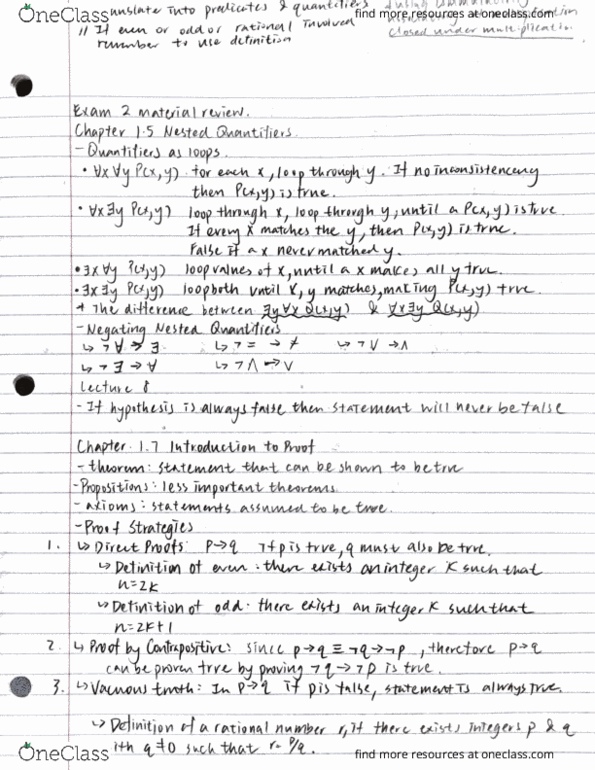 OneClass
find more resources at oneclass.com
translate into predicates & quantifiers
// If even or odd or rational involved
remember to use definition
closed under multiplication
Exam 2 material review.
Chapter 1.5 Nested Quantifiers
- Quantifiers as loops
• ∀x ∀y P(x,y) for each x, loop through y. If no inconsistencency
then P(x,y) is true.
• ∀x ∃y P(x,y) loop through x, loop through y, until a P(x,y) is true
If every x matches the y, then P(x,y) is true.
False if a x never matched y.
• ∃x ∀y P(x,y) loop values of x, until a x makes all y true.
• ∃x ∃y P(x,y) loop both until x, y matches, making P(x,y) true.
* The difference between ∃y ∀x Q(x,y) & ∀x ∃y Q(x,y)
- Negating Nested Quantifiers
↳ ¬∀ → ∃ ↳ ¬ = → ≠ ↳ ¬∨ → ∧
↳ ¬∃ → ∀ ↳ ¬∧ → ∨
Lecture 8
- If hypothesis is always false then statement will never be false
Chapter 1.7 Introduction to Proof
- theorem: statement that can be shown to be true
- Propositions: less important theorems
- axioms: statements assumed to be true.
- Proof Strategies
1. ↳ Direct Proofs: P→q If p is true, q must also be true.
↳ Definition of even: there exists an integer K such that
n=2K
↳ Definition of odd: there exists an integer K such that
n=2K+1
2. ↳ Proof by Contrapositive: since p→q ≡ ¬q→¬p, therefore p→q
can be proven true by proving ¬q→¬p is true.
3. ↳ Vacuous truth: In p→q if p is false, statement is always true.
↳ Definition of a rational number r, if there exists integers p & q
ith q≠0 such that r= p/q.
OneClass
find more resources at oneclass.com